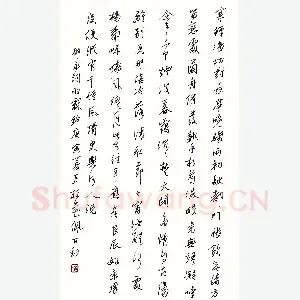 寒蝉凄切对长亭晚骤雨初歇都门帐饮无绪方
留恋处兰舟催发执手相看泪眼竟无语凝噎
念去去千里烟波暮霭沉沉楚天阔多情自古伤
离别更那堪冷落清秋节今宵酒醒何处
杨柳岸晓风残月此去经年应是良辰好景虚
设便纵有千种风情更与何人说
柳永词雨霖铃庚寅夏月
Shufawang.CN